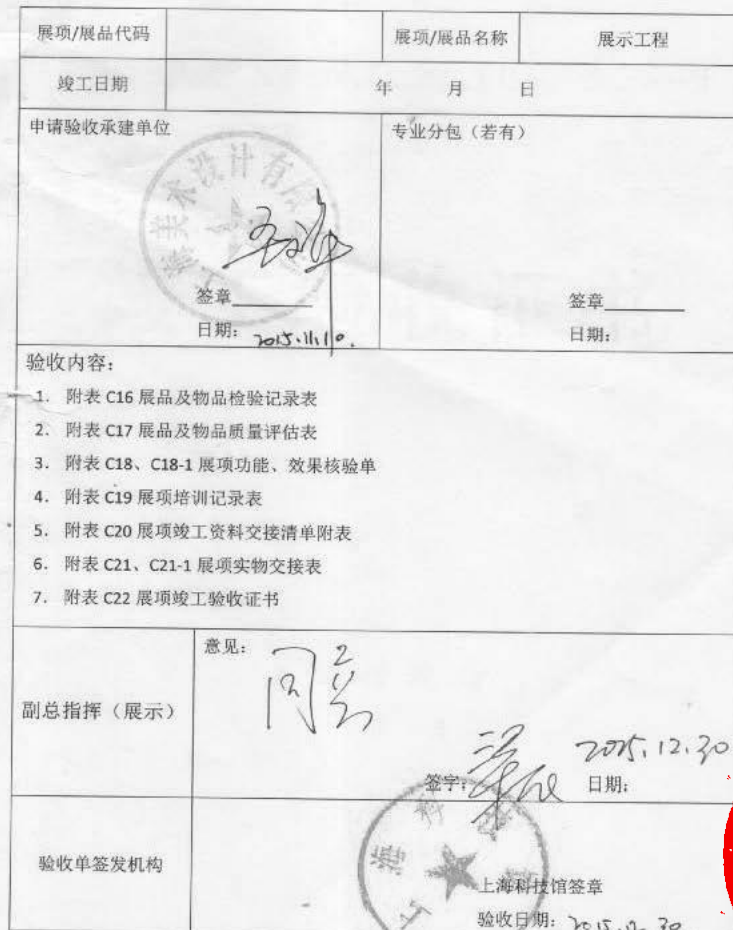 展项/展品代码 展项/展品名称 展示工程
竣工日期 年 月 日
申请验收承建单位 专业分包（若有）
上海美术设计有
签章 签章
日期: 2015.11.10. 日期:
验收内容:
1. 附表 C16 展品及物品检验记录表
2. 附表 C17 展品及物品质量评估表
3. 附表 C18、C18-1 展项功能、效果核验单
4. 附表 C19 展项培训记录表
5. 附表 C20 展项竣工资料交接清单附表
6. 附表 C21、C21-1 展项实物交接表
7. 附表 C22 展项竣工验收证书
副总指挥（展示）
意见:
同意
签字: 日期: 2015.12.30
验收单签发机构
上海科
上海科技馆签章
验收日期: 2015.12.30